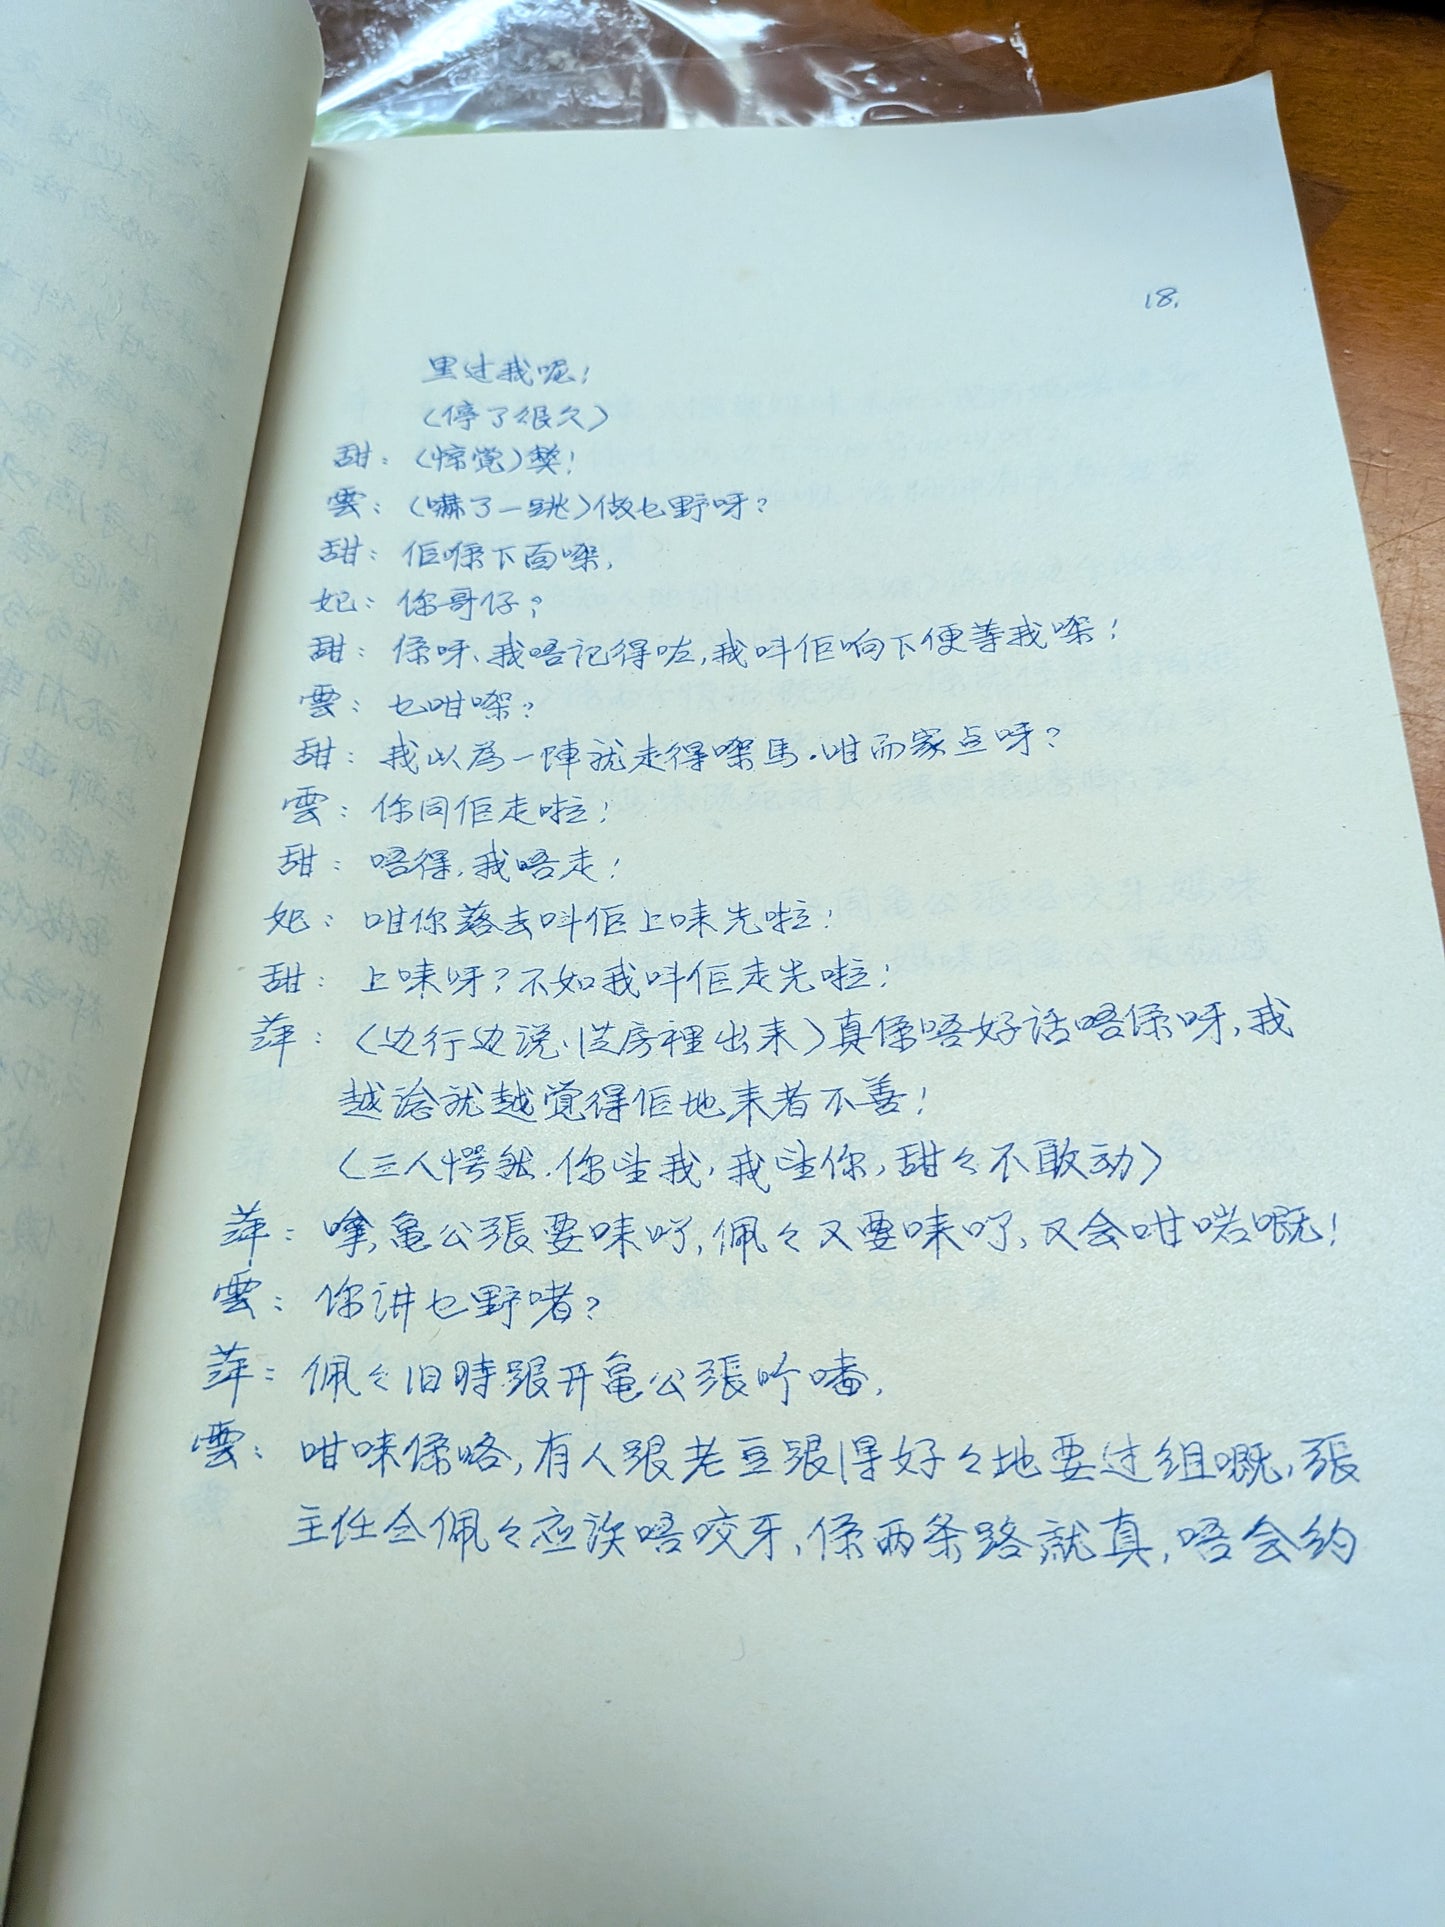 18.
里过我呢!
(停了很久)
甜:(惊觉)弊!
雲:(嚇了一跳)做乜野呀?
甜:佢喺下面㗎,
妃:你哥仔?
甜:係呀、我唔記得咗,我叫佢响下便等我㗎!
雲:乜咁㗎?
甜:我以為一陣就走得㗎馬.咁而家点呀?
雲:你同佢走啦!
甜:唔得,我唔走!
妃:咁你落去叫佢上嚟先啦!
甜:上嚟呀?不如我叫佢走先啦!
萍:(边行边说、從房裡出来)真係唔好話唔係呀,我
越諗就越覺得佢地来者不善!
(三人愕然.你望我,我望你,甜々不敢动)
萍:嗱,亀公張要嚟吖,佩々又要嚟吖,又会咁啱嘅!
雲:你讲乜野啫?
萍:佩々旧時跟开亀公張吖嘛,
雲:咁咪係咯,有人跟老豆跟得好々地要过组嘅,張
主任仝佩々应该唔咬牙,係两条路就真,唔会约